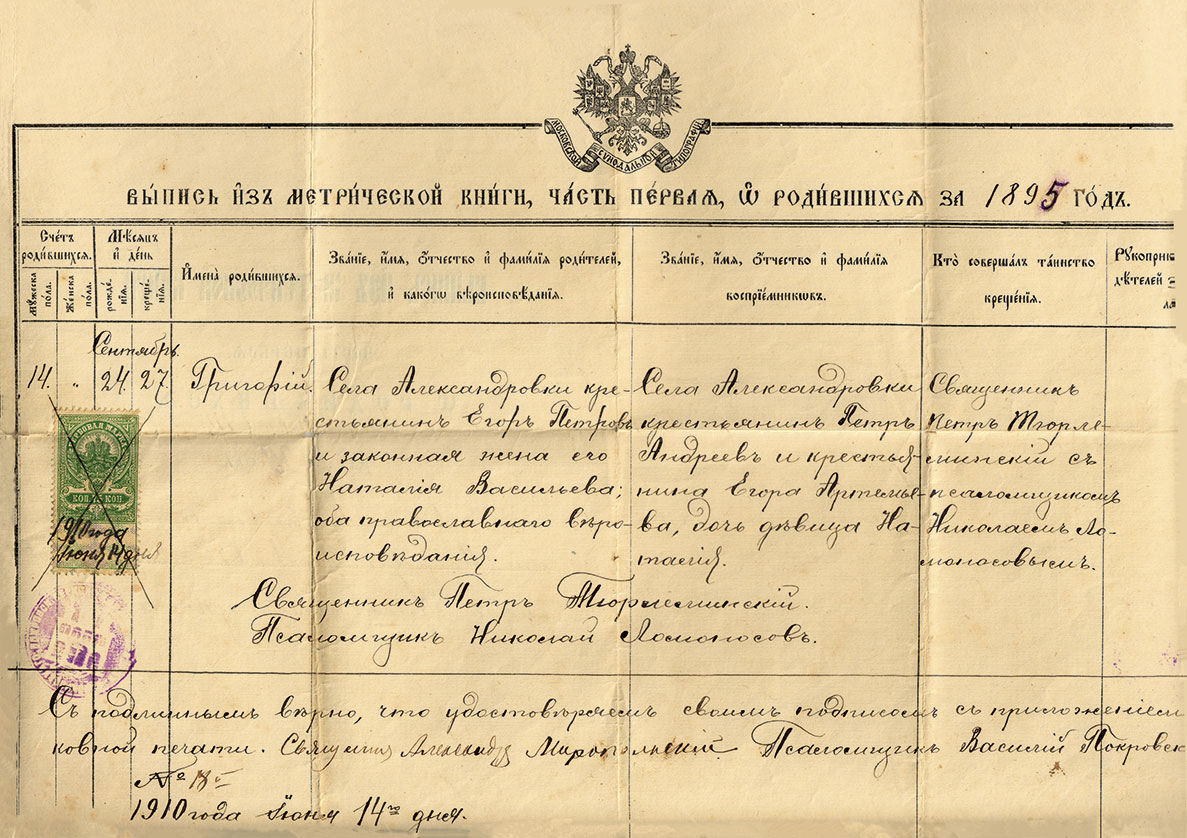 МОСКОВСКОЙ СѴНОДАЛЬНОЙ ТИПОГРАФІИ
ВЫ́ПИСЬ И҆ЗЪ МЕТРИ́ЧЕСКОЙ КНИ́ГИ, ЧА́СТЬ ПЕ́РВАЯ, Ѡ҆ РОДИ́ВШИХСЯ ЗА 1895 ГО́ДЪ.
Сче́тъ роди́вшихся.
Мꙋ́жеска пола.
Же́нска пола.
Мѣ́сяцъ и҆ де́нь
рожде́нїя.
креще́нїя.
И҆мена̀ роди́вшихся.
Зва́нїе, и҆́мя, ѻ҆́тчество и҆ фами́лїя роди́телей,
и҆ како́гѡ вѣроисповѣ́данїя.
Зва́нїе, и҆́мя, ѻ҆́тчество и҆ фами́лїя
воспрїе́мникѡвъ.
Кто̀ соверша́лъ та́инство
креще́нїя.
Рꙋкопри
дѣ́телей
Сентябрь.
14. „ 24. 27. Григорій.
Села Александровки кре-
стьянинъ Егоръ Петровъ
и законная жена его
Наталія Васильева;
оба православнаго вѣро-
исповѣданія.
Села Александровки
крестьянинъ Петръ
Андреевъ и крестья-
нина Егора Артемье-
ва, дочь дѣвица На-
талія.
Священникъ
Петръ
съ
псаломщикомъ
Николаемъ Ло-
моносовымъ.
КОП. 75 КОП.
1910 года
Іюня 14 дня
Священникъ Петръ
Псаломщикъ Николай Ломоносовъ.
Съ подлиннымъ вѣрно, что удостовѣряемъ своимъ подписомъ съ приложеніем
ковной печати. Священникъ Александръ Миропольскій Псаломщикъ Василій Покровск
№ 18
1910 года Іюня 14го дня.